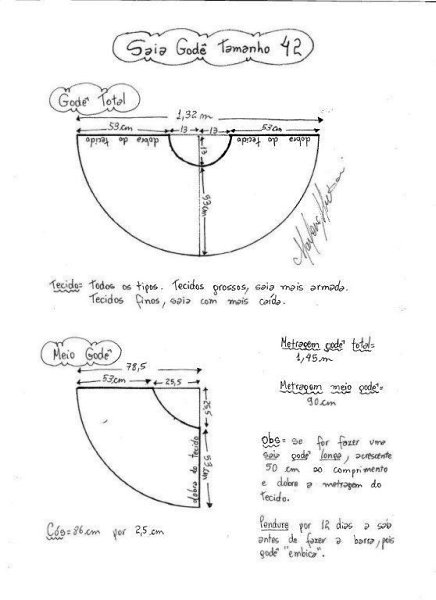 Saia Godê Tamanho 42
Godê Total
1,32 m
53 cm
13
13
53 cm
dobra do tecido
dobra do tecido
13
53 cm
Tecido= Todos os tipos. Tecidos grossos, saia mais armada.
Tecidos finos, saia com mais caída.
Meio Godê
78,5
53 cm
25,5
25,5
53 cm
dobra do tecido
Cós= 86 cm por 2,5 cm
Metragem godê total=
1,45 m
Metragem meio godê=
90 cm
Obs= se for fazer uma
saia godê longa, acrescente
50 cm ao comprimento
e dobre a metragem do
tecido.
Pendure por 12 dias a saia
antes de fazer a barra, pois
godê "embica".